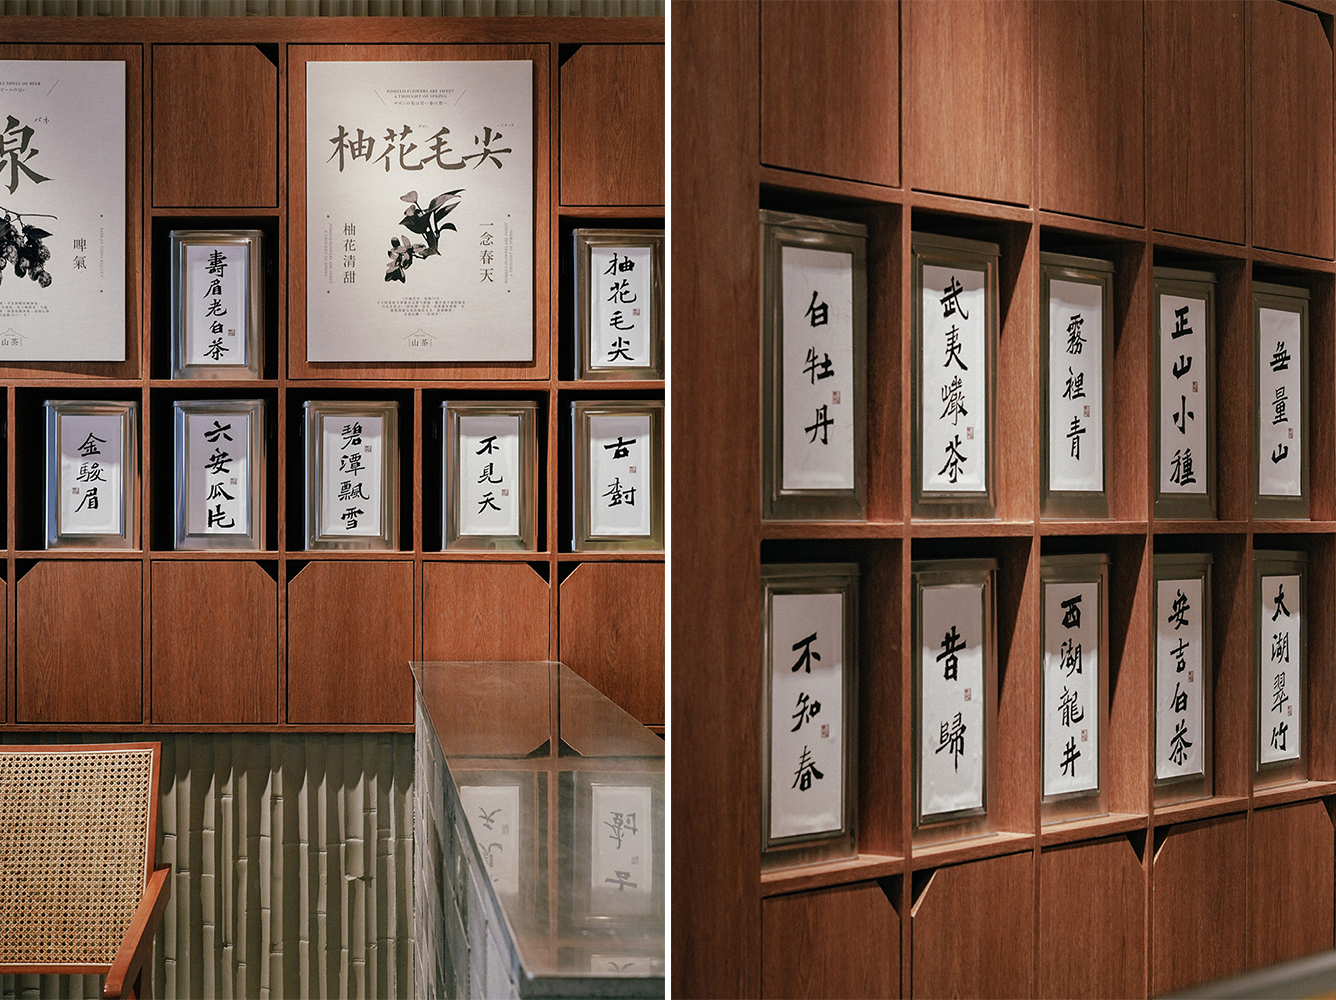 泉
バネ
啤氣
山茶
POMELO FLOWERS ARE SWEET
A THOUGHT OF SPRING
柚花毛尖
一念春天
柚花清甜
山茶
壽眉老白茶
柚花毛尖
金駿眉
六安瓜片
碧潭飄雪
不見天
古樹
白牡丹
武夷巖茶
霧裡青
正山小種
無量山
不知春
昔歸
西湖龍井
安吉白茶
太湖翠竹